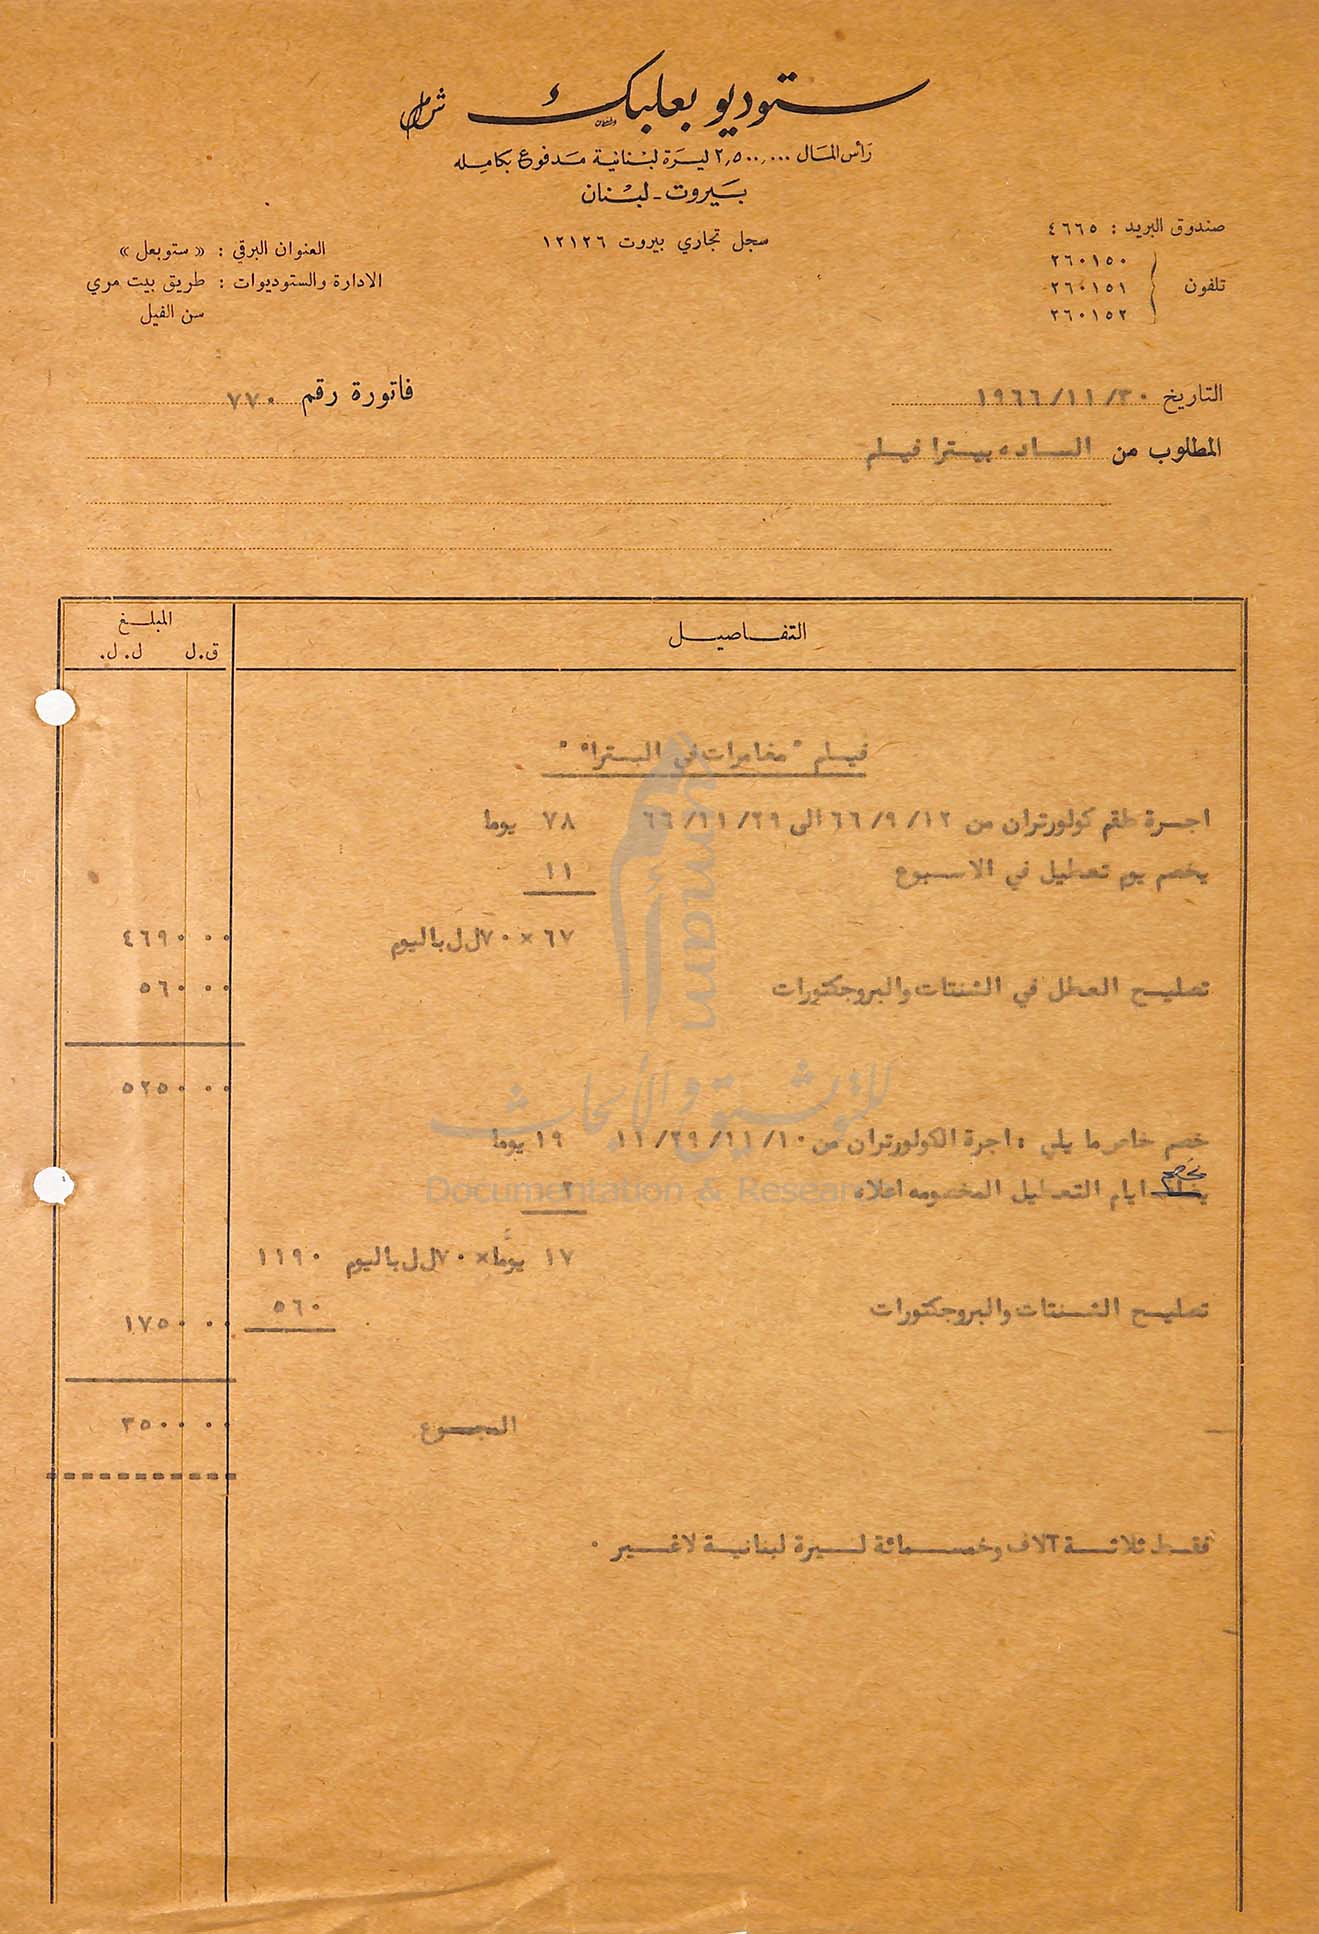 ستوديو بعلبك ش م ل
رأس المال ٢,٥٠٠,٠٠٠ ليرة لبنانية مدفوع بكامله
بيروت - لبنان
سجل تجاري بيروت ١٢١٢٦
صندوق البريد : ٤٦٦٥
تلفون
٢٦٠١٥٠
٢٦٠١٥١
٢٦٠١٥٢
العنوان البرقي : « ستوبعل »
الادارة والستوديوات : طريق بيت مري
سن الفيل
التاريخ ٣٠/١١/١٩٦٦
فاتورة رقم ٧٧٠
المطلوب من الساده بيترا فيلم
التفاصيل المبلغ
ق.ل ل.ل.
فيلم " مغامرات في البترا "
اجرة طقم كولورتران من ١٢/٩/٦٦ الى ٢٩/١١/٦٦ ٧٨ يوما
يخصم يوم تعطيل في الاسبوع ١١
٦٧ × ٧٠ ل ل باليوم ٤٦٩٠ ٠٠
تصليح العطل في الشنتات والبروجكتورات ٥٦٠ ٠٠
٥٢٥٠ ٠٠
خصم خاص ما يلي : اجرة الكولورتران من ١٠/١١/٢٩/١١ ١٩ يوما
يخصم ايام التعطيل المخصومه اعلاه ٢
١٧ يوما × ٧٠ ل ل باليوم ١١٩٠
تصليح الشنتات والبروجكتورات ٥٦٠ ١٧٥٠ ٠٠
المجموع ٣٥٠٠ ٠٠
فقط ثلاثة آلاف وخمسمائة ليرة لبنانية لاغير .
umam
للتوثيق والأبحاث
Documentation & Research